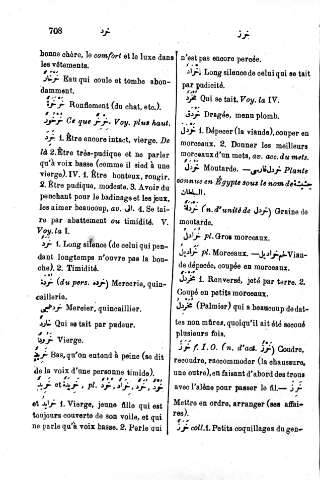 708
خرد
خرز
bonne chère, le comfort et le luxe dans
les vêtements.
Eau qui coule et tombe abon-
damment.
Ronflement (du chat, etc.).
Ce que خَرٌّ. Voy. plus haut.
خرد 1. Être encore intact, vierge. De
là 2. Être très-pudique et ne parler
qu'à voix basse (comme il sied à une
vierge). IV. 1. Être honteux, rougir.
2. Être pudique, modeste. 3. Avoir du
penchant pour le badinage et les jeux,
les aimer beaucoup, av. الى. 4. Se tai-
re par abattement ou timidité. V.
Voy. la I.
خرد 1. Long silence (de celui qui pen-
dant longtemps n'ouvre pas la bon-
che). 2. Timidité.
خرده (du pers. خرده) Mercerie, quin-
caillerie.
Mercier, quincailler.
Qui se tait par pudeur.
Vierge.
Bas, qu'on entend à peine (se dit
de la voix d'une personne timide).
خريد et خريدة, pl.
et 1. Vierge, jeune fille qui est
toujours couverte de son voile, et qui
ne parle qu'à voix basse. 2. Perle qui
n'est pas encore percée.
Long silence de celui qui se tait
par pudicité.
Qui se tait. Voy. la IV.
خردق Dragée, menu plomb.
خردل 1. Dépecer (la viande), couper en
morceaux. 2. Donner les meilleurs
morceaux d'un mets, av. acc. du mets.
خردل Moutarde. — خردل فارسى Plante
connue en Égypte sous le nom de حشيشة
السلطان
خردلة (n. d'unité de خردل) Graine de
moutarde.
pl. Gros morceaux.
pl. Morceaux. — Vian-
de dépecée, coupée en morceaux.
1. Renversé, jeté par terre. 2.
Coupé en petits morceaux.
(Palmier) qui a beaucoup de dat-
tes non mûres, quoiqu'il ait été secoué
plusieurs fois.
خرز f. I. O. (n. d'act. خرز) Coudre,
recoudre, raccommoder (la chaussure,
une outre), en faisant d'abord des trous
avec l'alène pour passer le fil. — خرز
Mettre en ordre, arranger (ses affai-
res).
خرز coll. 1. Petits coquillages du gen-